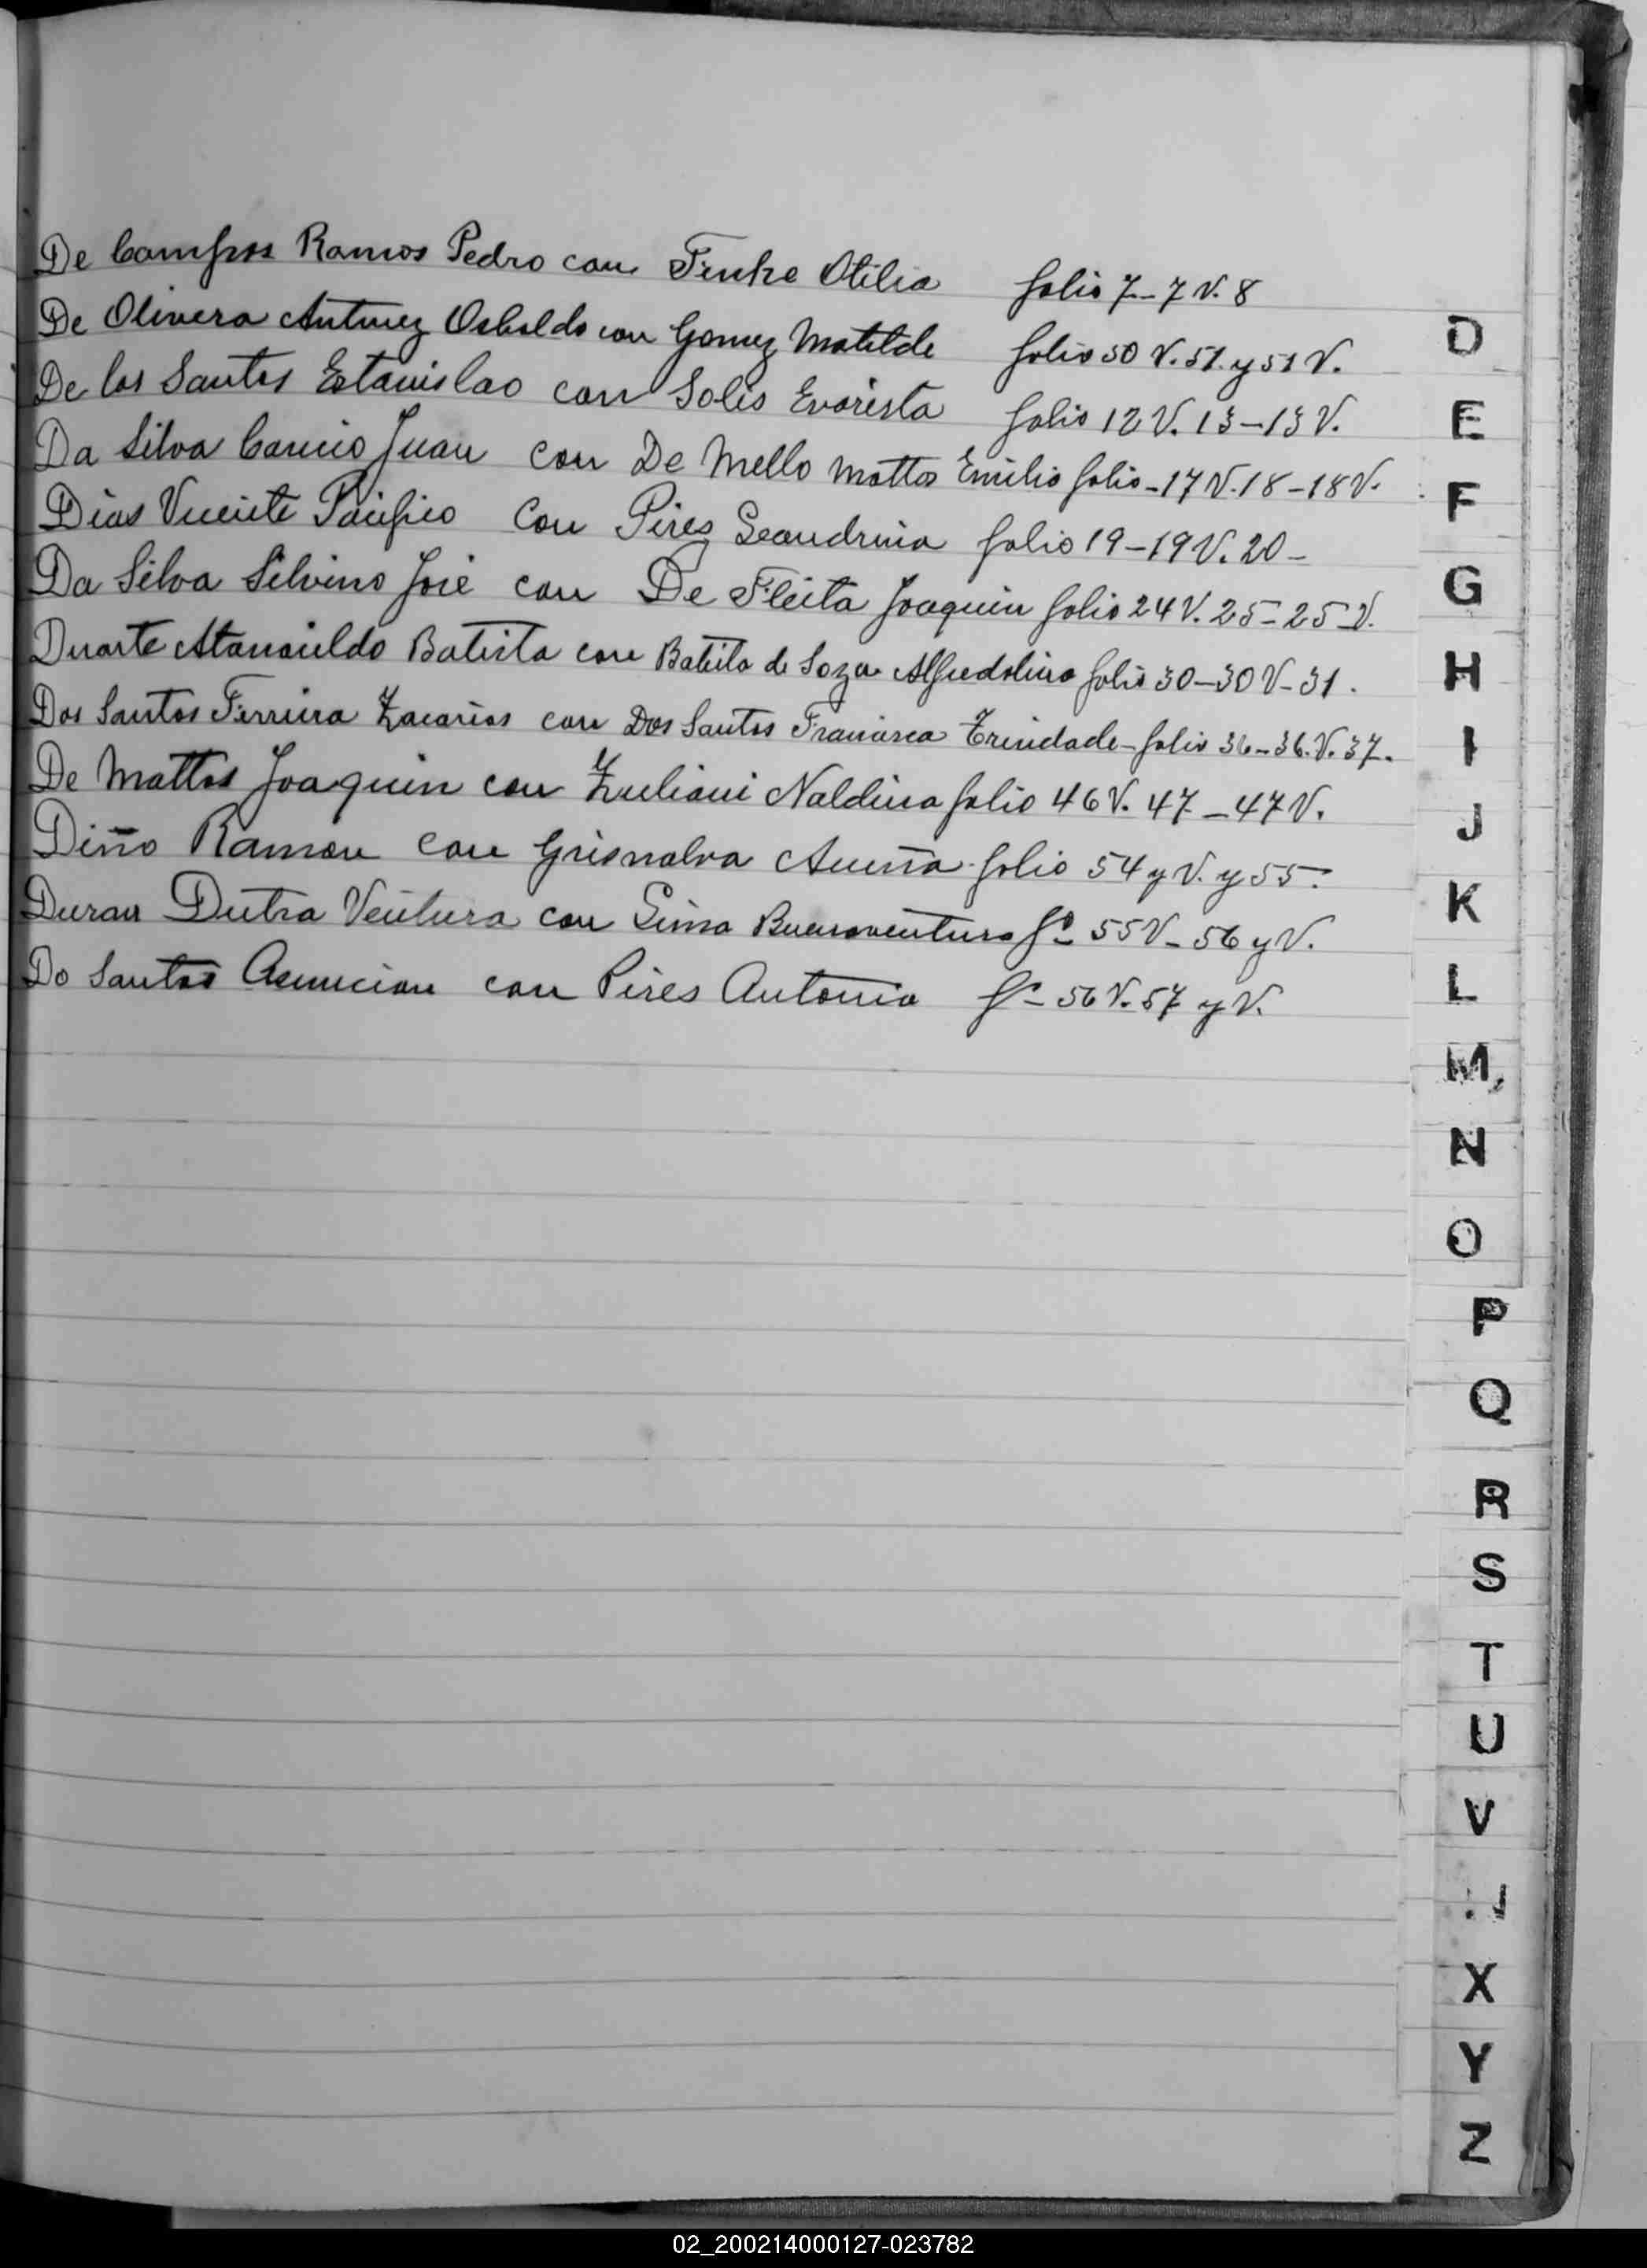 De Campos Ramos Pedro con Funke Otilia folio 7-7 V. 8
De Olivera Antunez Osbaldo con Gomez Matilde folio 50 V. 51. y 51 V.
De los Santos Estanislao con Solis Evarista folio 12 V. 13-13 V.
Da Silva Juan con De Mello Mattos Emilia folio-17 V. 18-18 V.
Dias Vicente Pacifico Con Pires Leandrina folio 19-19 V. 20-
Da Silva Silvino José con De Fleita Joaquin folio 24 V. 25-25-V.
Duarte Atanaildo Batista con Batista de Soza folio 30-30 V-31.
Dos Santos Ferreira Zacarias con Dos Santos Francisca Trindade-folio 36-36.V. 37.
De Mattos Joaquin con Zuliani Naldina folio 46 V. 47-47 V.
Diño Ramon con Grisnalva Acuña-folio 54 y V. y 55.
Duran Dutra Ventura con Lima Buenaventura fº 55 V-56 y V.
Do Santos Asuncion con Pires Antonia fº-56 V. 57 y V.
D
E
F
G
H
I
J
K
L
M,
N
O
P
Q
R
S
T
U
V
X
Y
Z
02_200214000127-023782